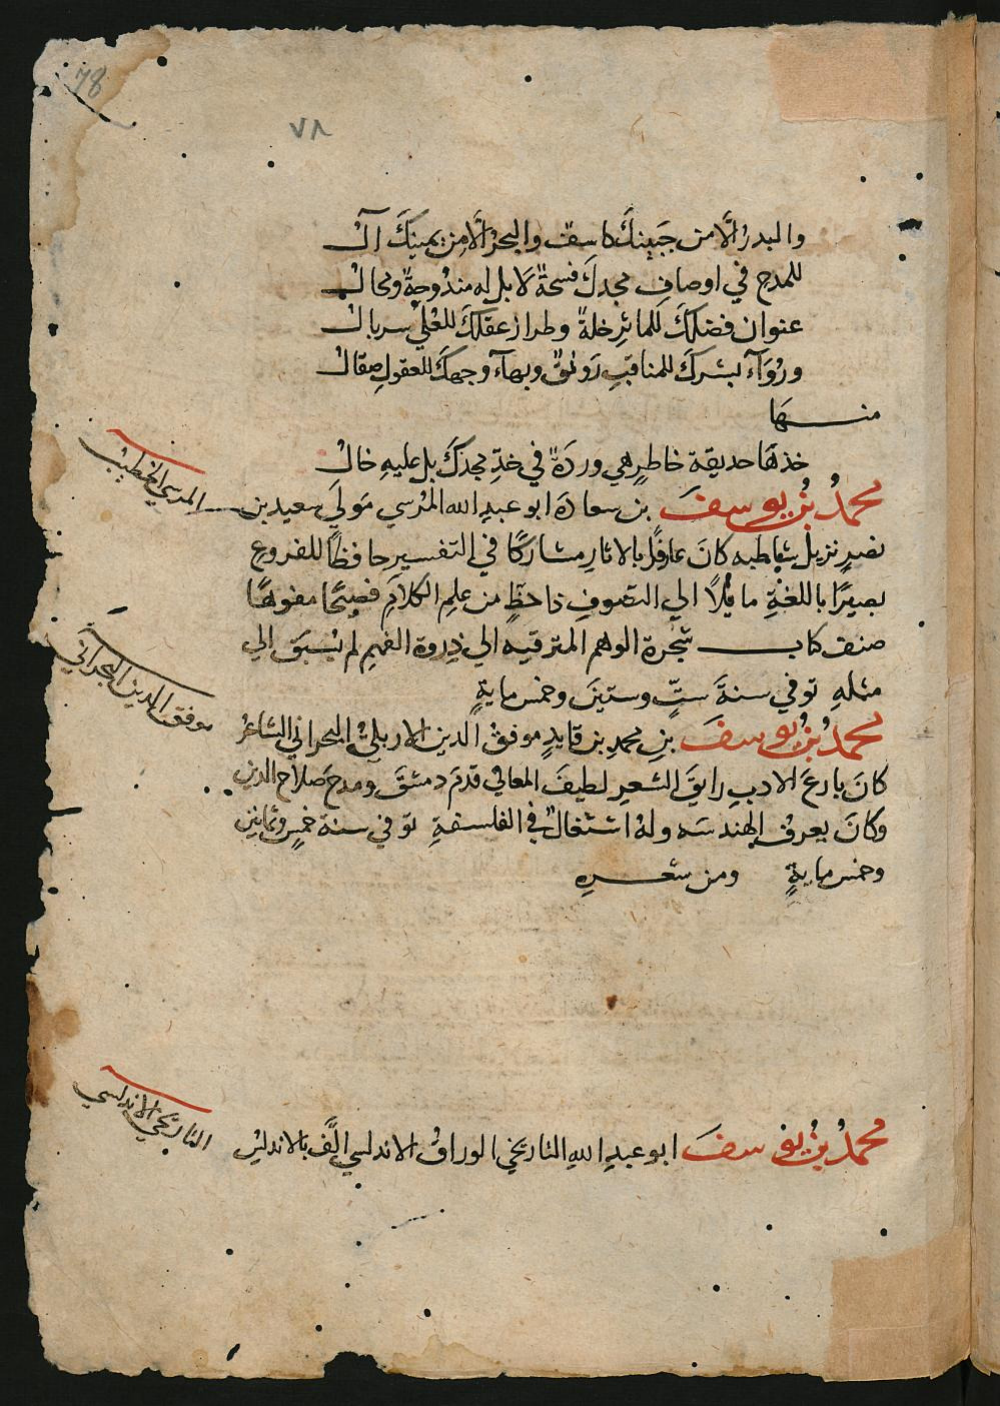 78
٧٨
والبدر الَّا من جَبِينكَ كاسفٌ والبحرُ الَّا مِن يمينكَ آلُ
للمدح في اوصافِ مجدكَ فسحةٌ لَا بل له مندُوحةٌ ومجالُ
عنوان فضلكَ للمآثرِ حلةٌ وطراز عقلكَ للعُلَي سربالُ
ورُوَآءُ بشركَ للمناقبِ رَونقٌ وبهآء وجهكَ للعقولِ صقالُ
منــها
خذهَا حديقة خاطرٍ هي وردَةٌ في خدِّ مجدكَ بل عليهِ خالُ
المرسي الخطيب
محمدُ بُن يوسفَ بن سعادَة ابو عبدِ الله المُرْسي مَولَي سعيد بن
نصرٍ نزيل شاطبه كانَ عارفًا بالاثارِ مشاركًا في التفسيرِ حافظًا للفروع
بصيرًا باللغةِ مايلًا الي التصوفِ ذا حظٍّ من علمِ الكلامَ فصيحًا مفوهًا
صنف كتابــ شجرة الوهم المترقيه الي ذِروة الفهمِ لم يُسْبَق الي
مثلهِ توفي سنةَ ستٍّ وستينَ وخمس مايةٍ
موفق الدين البحراني
محمدُ بُن يوسفَ بنِ محمدِ بن قايدٍ موفقُ الدينِ الاربليُّ البحراني الشاعرُ
كانَ بارعَ الادبِ رايقَ الشعرِ لطيفَ المعاني قدمَ دمشقَ ومدحَ صلاحَ الدينِ
وكانَ يعرفُ الهندسَه ولهُ اشتغالٌ في الفلسفةِ توفي سنة خمسٍ وثمانينَ
وخمس مايةٍ ومن شعــرِه
التاريخي الاندلسي
محمدُ بُن يوسفَ ابو عبدِ اللهِ التاريخي الوراقُ الاندلسي الَّف بالاندلس